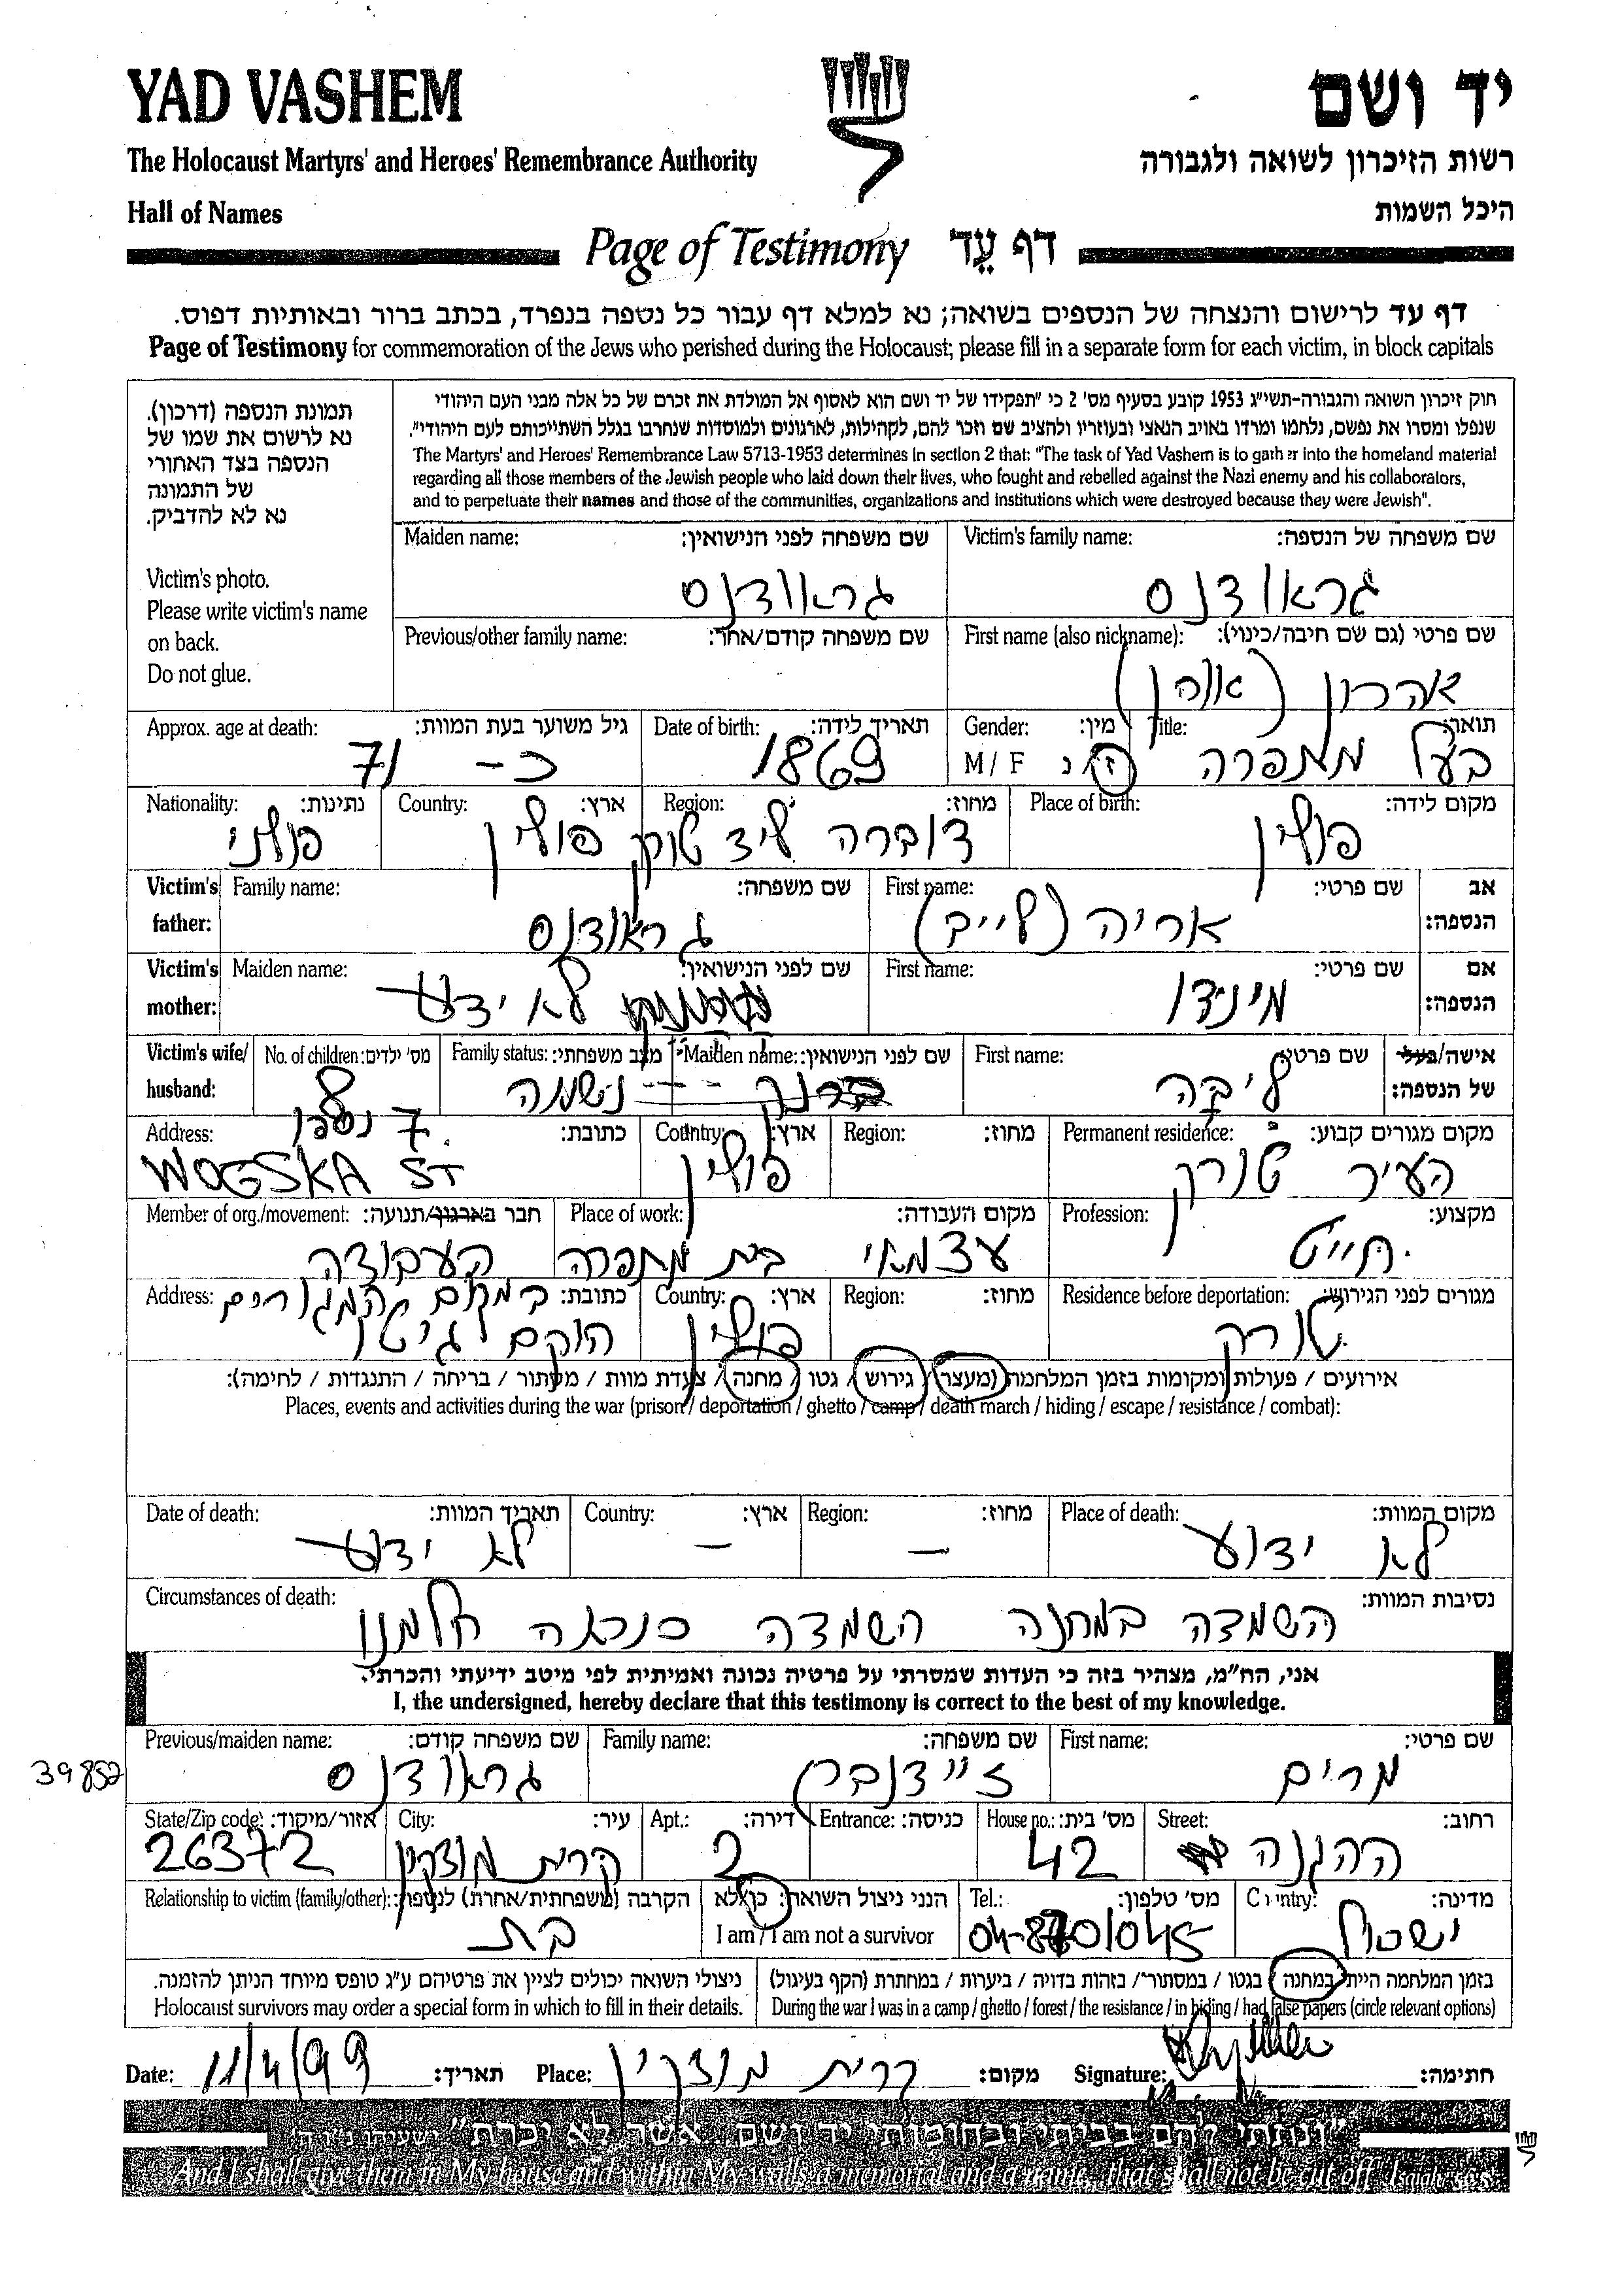 YAD VASHEM
יד ושם
The Holocaust Martyrs' and Heroes' Remembrance Authority
רשות הזיכרון לשואה ולגבורה
Hall of Names
היכל השמות
Page of Testimony דף עֵד
דף עד לרישום והנצחה של הנספים בשואה; נא למלא דף עבור כל נספה בנפרד, בכתב ברור ובאותיות דפוס.
Page of Testimony for commemoration of the Jews who perished during the Holocaust; please fill in a separate form for each victim, in block capitals
תמונת הנספה (דרכון).
נא לרשום את שמו של
הנספה בצד האחורי
של התמונה
נא לא להדביק.
Victim's photo.
Please write victim's name
on back.
Do not glue.
חוק זיכרון השואה והגבורה-תשי״ג 1953 קובע בסעיף מס' 2 כי "תפקידו של יד ושם הוא לאסוף אל המולדת את זכרם של כל אלה מבני העם היהודי
שנפלו ומסרו את נפשם, נלחמו ומרדו באויב הנאצי ובעוזריו ולהציב שם וזכר להם, לקהילות, לארגונים ולמוסדות שנחרבו בגלל השתייכותם לעם היהודי".
The Martyrs' and Heroes' Remembrance Law 5713-1953 determines in section 2 that: "The task of Yad Vashem is to gather into the homeland material
regarding all those members of the Jewish people who laid down their lives, who fought and rebelled against the Nazi enemy and his collaborators,
and to perpetuate their names and those of the communities, organizations and institutions which were destroyed because they were Jewish".
Victim's family name: שם משפחה של הנספה:
גראודנס
Maiden name: שם משפחה לפני הנישואין:
גראודנס
First name (also nickname): שם פרטי (גם שם חיבה/כינוי):
אהרון
Previous/other family name: שם משפחה קודם/אחר:
Title: תואר:
בעל מתפרה
Gender: מין:
M / F ז/נ
Date of birth: תאריך לידה:
1869
Approx. age at death: גיל משוער בעת המוות:
כ- 71
Place of birth: מקום לידה:
פולין
Region: מחוז:
דוברה ליד טורק
Country: ארץ:
פולין
Nationality: נתינות:
פולני
Victim's father: אב הנספה:
First name: שם פרטי:
אריה (לייב)
Family name: שם משפחה:
גראודנס
Victim's mother: אם הנספה:
First name: שם פרטי:
מינדו
Maiden name: שם לפני הנישואין:
לא ידוע
Victim's wife/husband: אישה/בעל של הנספה:
First name: שם פרטי:
ליבה
Maiden name: שם לפני הנישואין:
Family status: מצב משפחתי:
No. of children: מס' ילדים:
7
Permanent residence: מקום מגורים קבוע:
העיר טורק
Region: מחוז:
Country: ארץ:
פולין
Address: כתובת:
WOGSKA ST
Profession: מקצוע:
חייט
Place of work: מקום העבודה:
עצמאי בית מתפרה
Member of org./movement: חבר בארגון/תנועה:
העבודה
Residence before deportation: מגורים לפני הגירוש:
טורק
Region: מחוז:
Country: ארץ:
פולין
Address: כתובת:
במקום המגורים
הוקם גיטו
אירועים / פעולות ומקומות בזמן המלחמה (מעצר / גירוש / גטו / מחנה / צעדת מוות / מסתור / בריחה / התנגדות / לחימה):
Places, events and activities during the war (prison / deportation / ghetto / camp / death march / hiding / escape / resistance / combat):
Place of death: מקום המוות:
לא ידוע
Region: מחוז:
–
Country: ארץ:
–
Date of death: תאריך המוות:
לא ידוע
Circumstances of death: נסיבות המוות:
השמדה במחנה השמדה כנראה חלמנו
אני, הח״מ, מצהיר בזה כי העדות שמסרתי על פרטיה נכונה ואמיתית לפי מיטב ידיעתי והכרתי.
I, the undersigned, hereby declare that this testimony is correct to the best of my knowledge.
First name: שם פרטי:
מרים
Family name: שם משפחה:
זיידנברג
Previous/maiden name: שם משפחה קודם:
גראודנס
39852
Street: רחוב:
ההגנה
House no.: מס' בית:
42
Entrance: כניסה:
Apt.: דירה:
2
City: עיר:
קרית מוצקין
State/Zip code: אזור/מיקוד:
26372
Country: מדינה:
ישראל
Tel.: מס' טלפון:
הנני ניצול השואה: כן/לא
I am / I am not a survivor
Relationship to victim (family/other): הקרבה (משפחתית/אחרת) לנספה:
בת
בזמן המלחמה הייתי במחנה / בגטו / במסתור / בזהות בדויה / ביערות / במחתרת (הקף בעיגול)
During the war I was in a camp / ghetto / forest / the resistance / in hiding / had false papers (circle relevant options)
ניצולי השואה יכולים לציין את פרטיהם ע״ג טופס מיוחד הניתן להזמנה.
Holocaust survivors may order a special form in which to fill in their details.
Date: 11/4/99 תאריך: Place: קרית מוצקין מקום: Signature: חתימה:
"ונתתי להם בביתי ובחומותי יד ושם... אשר לא יכרת"
And I shall give them in My house and within My walls a memorial and a name... that shall not be cut off.